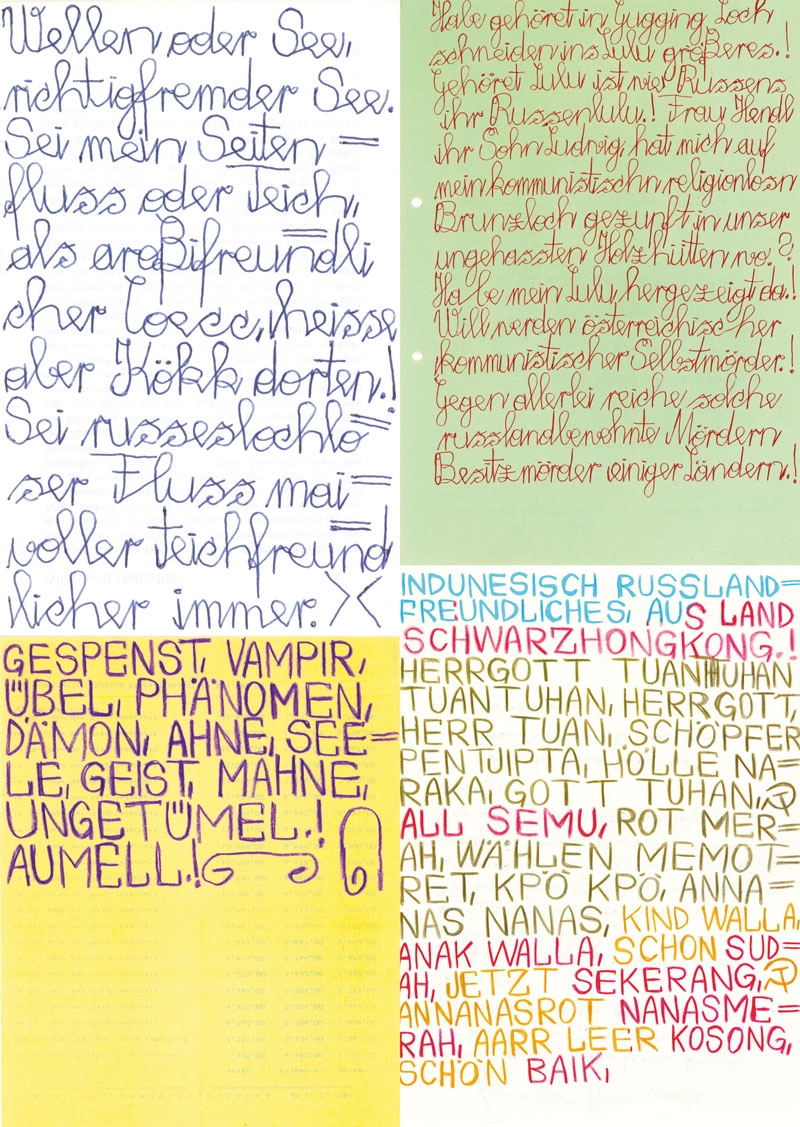 Wellen oder See,
richtigfremder See.
Sei mein Seiten =
fluss oder Teich,
als großifreundli =
cher Loecc, heisse
aber Kökk dorten.!
Sei russeslochlo =
ser Fluss mai =
voller teichfreund =
licher immer.
Habe gehöret in Gugging Loch
schneiden ins Lulu größeres.!
Gehöret Lulu ist nie Russens
ihr Russenlulu.! Frau Hendl
ihr Sohn Ludwig, hat mich auf
mein kommunistischn religionlosn
Brunzloch gezunft in unser
ungehassten Holzhütten wo.?
Habe mein Lulu, hergezeigt da.!
Will werden österreichischer
kommunistischer Selbstmörder.!
Gegen allerlei reiche solche
russlandbenohnte Mördern
Besitzmörder einiger Ländern.!
GESPENST, VAMPIR,
ÜBEL, PHÄNOMEN,
DÄMON, AHNE, SEE=
LE, GEIST, MAHNE,
UNGETÜMEL.!
AUMELL.!
INDUNESISCH RUSSLAND=
FREUNDLICHES, AUS LAND
SCHWARZHONGKONG.!
HERRGOTT TUANTUHAN
TUANTUHAN, HERRGOTT,
HERR TUAN, SCHÖPFER
PENTJIPTA, HÖLLE NA=
RAKA, GOTT TUHAN,
ALL SEMU, ROT MER=
AH, WÄHLEN MEMOT=
RET, KPÖ KPÖ, ANNA=
NAS NANAS, KIND WALLA,
ANAK WALLA, SCHON SUD=
AH, JETZT SEKERANG,
ANNANASROT NANASME=
RAH, AARR LEER KOSONG,
SCHÖN BAIK,